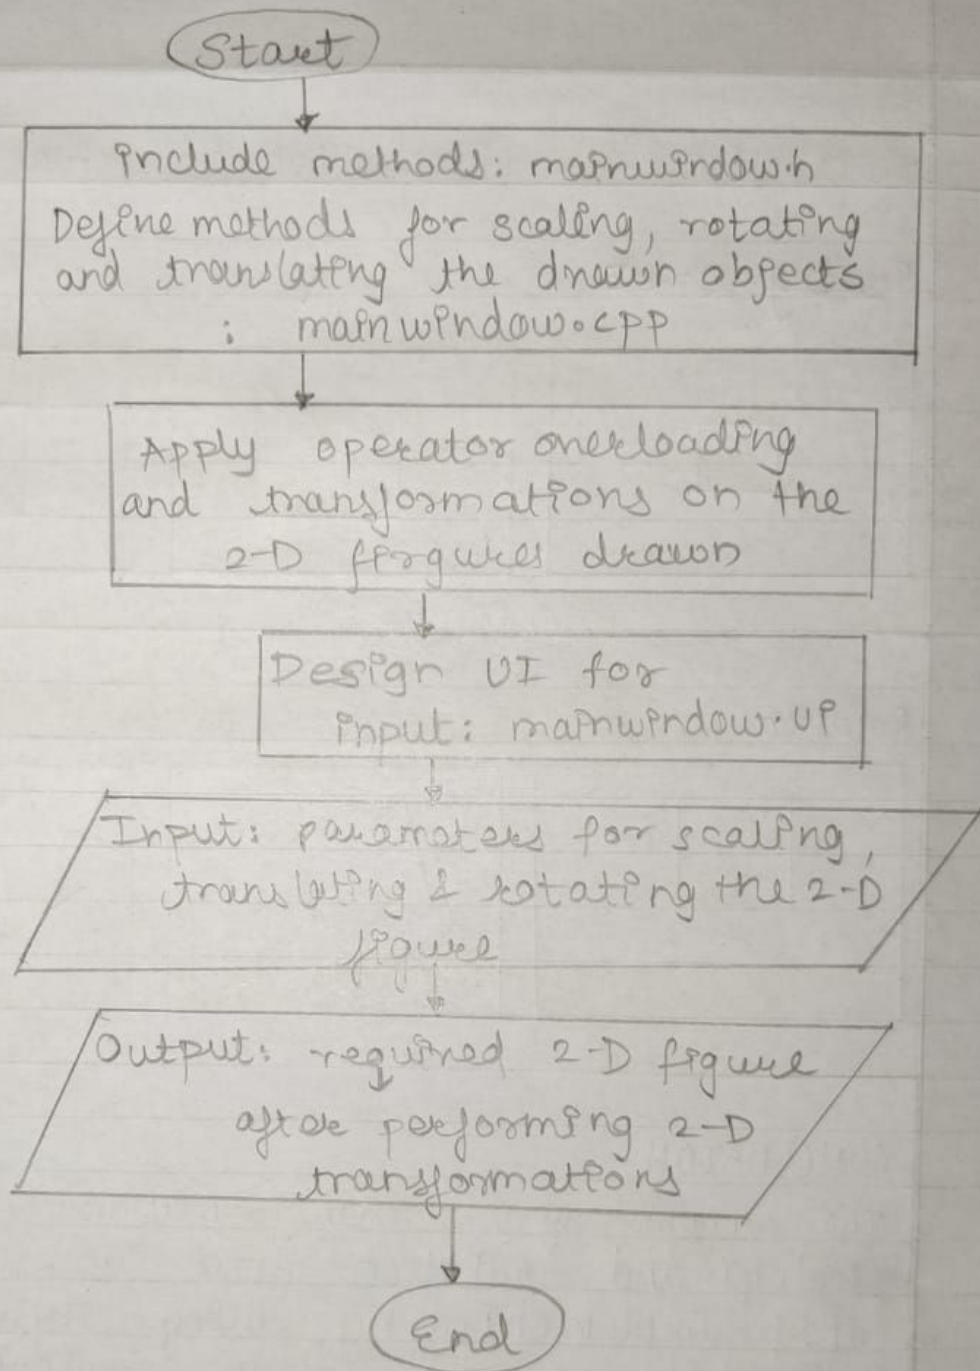 Start
include methods: mainwindow.h
Define methods for scaling, rotating
and translating the drawn objects
: mainwindow.cpp
Apply operator overloading
and transformations on the
2-D firgures drawn
Design UI for
input: mainwindow.ui
Input: parameters for scaling,
translating & rotating the 2-D
figure
Output: required 2-D figure
after performing 2-D
transformations
End